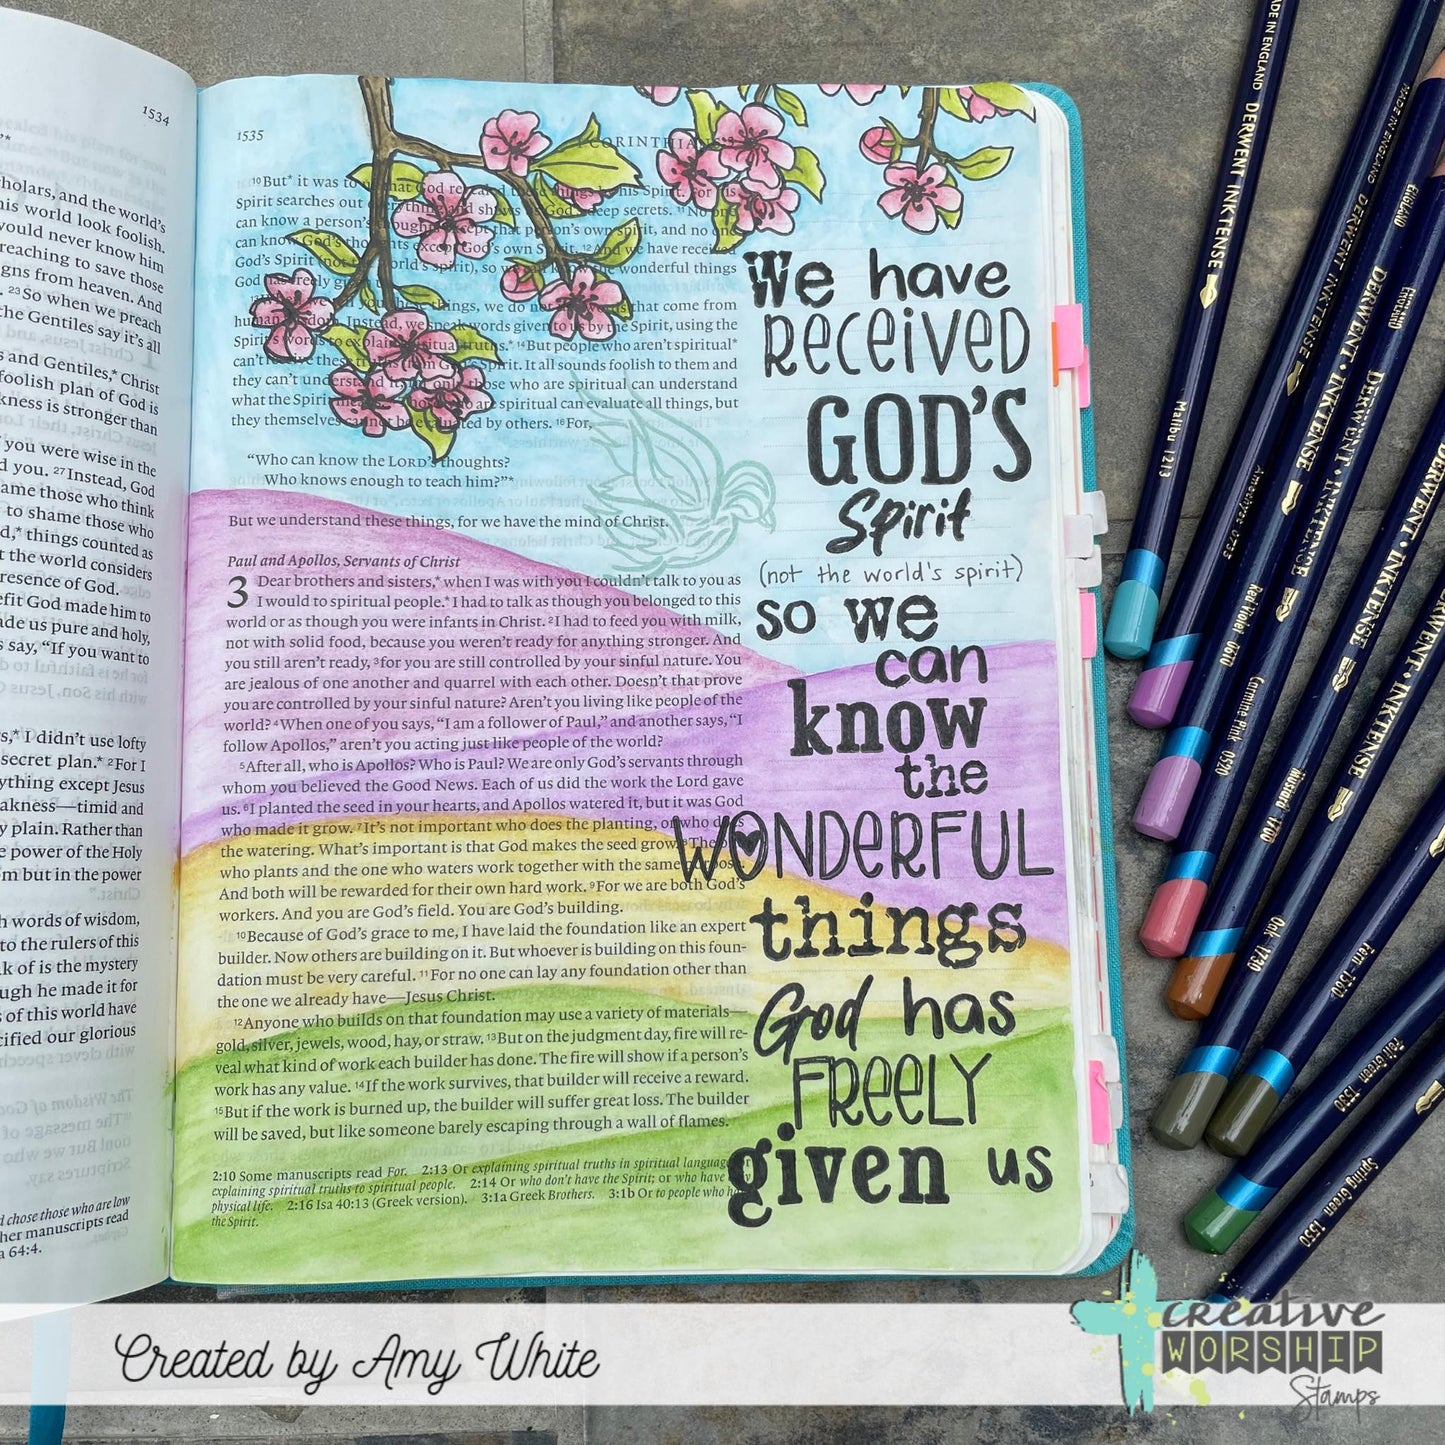 1534
scholars, and the world's
this world look foolish.
would never know him
preaching to save those
signs from heaven. And
23So when we preach
the Gentiles say it's all
s and Gentiles,* Christ
foolish plan of God is
weakness is stronger than
you were wise in the
d you. 27Instead, God
those who think
to shame those who
things counted as
the world considers
presence of God.
God made him to
made us pure and holy,
say, "If you want to
I didn't use lofty
secret plan.* 2For I
everything except Jesus
weakness—timid and
plain. Rather than
the power of the Holy
but in the power
words of wisdom,
to the rulers of this
of is the mystery
though he made it for
of this world have
crucified our glorious
chose those who are low
other manuscripts read
64:4.
1535
1 CORINTHIANS 3
10But* it was to us that God revealed these things by his Spirit. For his
Spirit searches out everything and shows us God's deep secrets. 11No one
can know a person's thoughts except that person's own spirit, and no one
can know God's thoughts except God's own Spirit. 12And we have received
God's Spirit (not the world's spirit), so we can know the wonderful things
God has freely given us.
13When we tell you these things, we do not use words that come from
human wisdom. Instead, we speak words given to us by the Spirit, using the
Spirit's words to explain spiritual truths.* 14But people who aren't spiritual*
can't receive these truths from God's Spirit. It all sounds foolish to them and
they can't understand it, for only those who are spiritual can understand
what the Spirit means. 15Those who are spiritual can evaluate all things, but
they themselves cannot be evaluated by others. 16For,
"Who can know the LORD's thoughts?
Who knows enough to teach him?"*
But we understand these things, for we have the mind of Christ.
Paul and Apollos, Servants of Christ
3 Dear brothers and sisters,* when I was with you I couldn't talk to you as
I would to spiritual people.* I had to talk as though you belonged to this
world or as though you were infants in Christ. 2I had to feed you with milk,
not with solid food, because you weren't ready for anything stronger. And
you still aren't ready, 3for you are still controlled by your sinful nature. You
are jealous of one another and quarrel with each other. Doesn't that prove
you are controlled by your sinful nature? Aren't you living like people of the
world? 4When one of you says, "I am a follower of Paul," and another says, "I
follow Apollos," aren't you acting just like people of the world?
5After all, who is Apollos? Who is Paul? We are only God's servants through
whom you believed the Good News. Each of us did the work the Lord gave
us. 6I planted the seed in your hearts, and Apollos watered it, but it was God
who made it grow. 7It's not important who does the planting, or who does
the watering. What's important is that God makes the seed grow. 8The one
who plants and the one who waters work together with the same purpose.
And both will be rewarded for their own hard work. 9For we are both God's
workers. And you are God's field. You are God's building.
10Because of God's grace to me, I have laid the foundation like an expert
builder. Now others are building on it. But whoever is building on this foun-
dation must be very careful. 11For no one can lay any foundation other than
the one we already have—Jesus Christ.
12Anyone who builds on that foundation may use a variety of materials—
gold, silver, jewels, wood, hay, or straw. 13But on the judgment day, fire will re-
veal what kind of work each builder has done. The fire will show if a person's
work has any value. 14If the work survives, that builder will receive a reward.
15But if the work is burned up, the builder will suffer great loss. The builder
will be saved, but like someone barely escaping through a wall of flames.
2:10 Some manuscripts read For. 2:13 Or explaining spiritual truths in spiritual language, or
explaining spiritual truths to spiritual people. 2:14 Or who don't have the Spirit; or who have only
physical life. 2:16 Isa 40:13 (Greek version). 3:1a Greek Brothers. 3:1b Or to people who have
the Spirit.
We have
RECEIVED
GOD'S
Spirit
(not the world's spirit)
so we
can
know
the
WONDERFUL
things
God has
FREELY
given us
MADE IN ENGLAND DERWENT INKTENSE
Malibu 1213
MADE IN ENGLAND DERWENT INKTENSE
Amethyst 0735
ENGLAND DERWENT • INKTENSE
Red Violet 0610
ENGLAND DERWENT • INKTENSE
Carmine Pink 0520
DERWENT • INKTENSE
Mustard 1700
DERWENT • INKTENSE
Oak 1730
Fern 1560
Felt Green 1530
Spring Green 1530
Created by Amy White
Creative
WORSHIP
Stamps